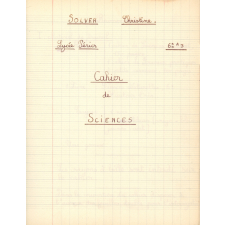 SOLVER Christine.
Lycée Périer 6è 3
Cahier
de
SCIENCES